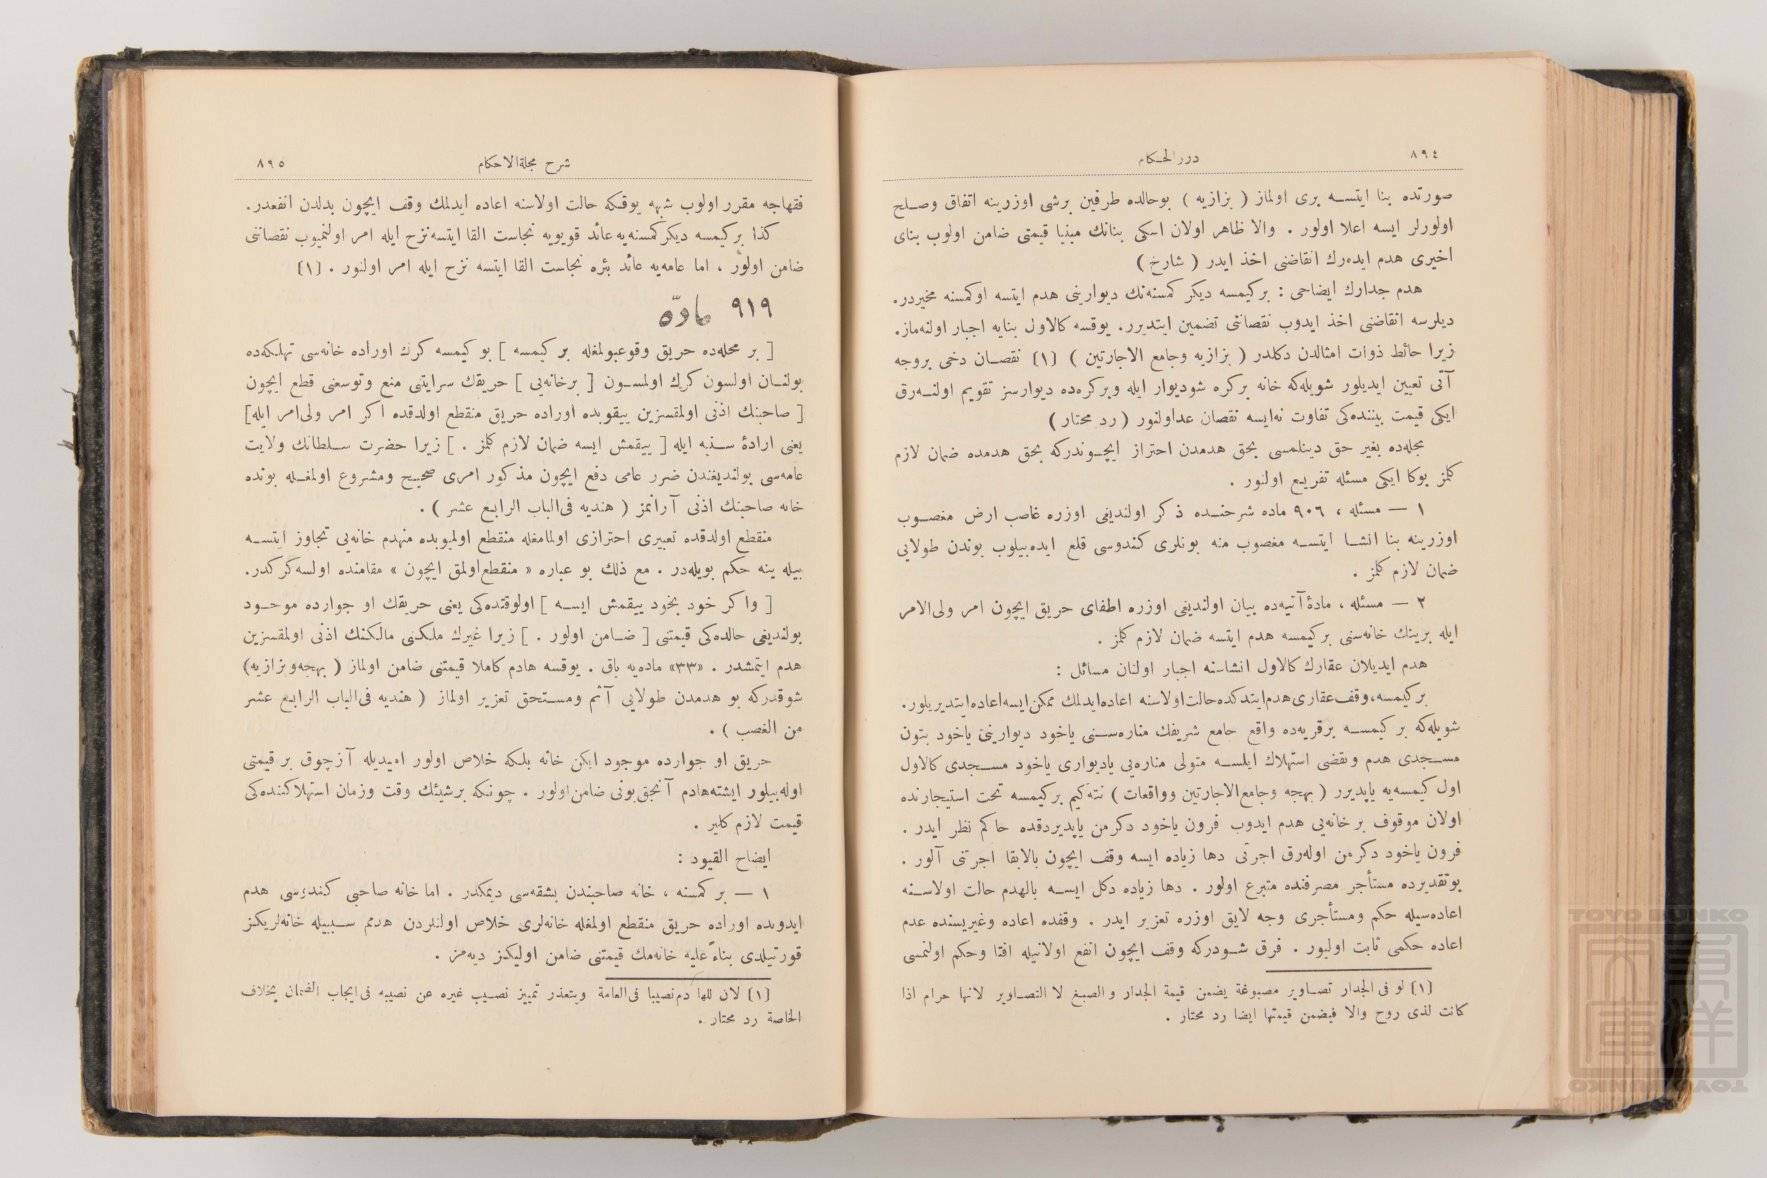 ٨٩٤
درر الحكام
صورتده بنا ايتسه بری اولماز ( بزازيه ) بوحالده طرفين برشی اوزرينه اتفاق وصلح
اولورلر ايسه اعلا اولور . والا ظاهر اولان اسكی بنانك مبنيا قيمتی ضامن اولوب بنای
اخيری هدم ايده‌رك انقاضنی اخذ ايدر ( شارح )
هدم جدارك ايضاحی : بركيمسه ديكر كمسنه‌نك ديوارينی هدم ايتسه اوكمسنه مخيردر.
ديلرسه انقاضنی اخذ ايدوب نقصاننی تضمين ايتديرر. يوقسه كالاول بنايه اجبار اولنه‌ماز.
زيرا حائط ذوات امثالدن دكلدر ( بزازيه وجامع الاجارتين ) [١] نقصان دخی بروجه
آتی تعيين ايديلور شويله‌كه خانه بركره شوديوار ايله وبركره‌ده ديوارسز تقويم اولنه‌رق
ايكی قيمت بيننده‌كی تفاوت نه‌ايسه نقصان عداولنور ( رد محتار )
مجله‌ده بغير حق دينلمسی بحق هدمدن احتراز ايچوندركه بحق هدمده ضمان لازم
كلمز بوكا ايكی مسئله تفريع اولنور .
١ — مسئله ، ٩٠٦ ماده شرحنده ذكر اولنديغی اوزره غاصب ارض مغصوب
اوزرينه بنا انشا ايتسه مغصوب منه بونلری كندوسی قلع ايده‌بيلوب بوندن طولايی
ضمان لازم كلمز .
٢ — مسئله ، مادهٔ آتيه‌ده بيان اولنديغی اوزره اطفای حريق ايچون امر ولی‌الامر
ايله برينك خانه‌سنی بركيمسه هدم ايتسه ضمان لازم كلمز .
هدم ايديلان عقارك كالاول انشاسنه اجبار اولنان مسائل :
بركيمسه، وقف عقاری هدم ايتدكده حالت اولاسنه اعاده ايدلمك ممكن ايسه اعاده ايتديريلور.
شويله‌كه بركيمسه برقريه‌ده واقع جامع شريفك مناره‌سنی ياخود ديوارينی ياخود بتون
مسجدی هدم ونقضی استهلاك ايلسه متولی مناره‌يی ياديواری ياخود مسجدی كالاول
اول كيمسه‌يه ياپديرر ( بهجه وجامع الاجارتين وواقعات ) نته‌كيم بركيمسه تحت استيجارنده
اولان موقوف برخانه‌يی هدم ايدوب فرون ياخود دكرمن ياپديردقده حاكم نظر ايدر .
فرون ياخود دكرمن اوله‌رق اجرتی دها زياده ايسه وقف ايچون بالابقا اجرتنی آلور .
بوتقديرده مستأجر مصرفنده متبرع اولور . دها زياده دكل ايسه بالهدم حالت اولاسنه
اعاده‌سيله حكم ومستأجری وجه لايق اوزره تعزير ايدر . وقفده اعاده وغيريسنده عدم
اعاده حكمی ثابت اوليور . فرق شودركه وقف ايچون انفع اولانيله افتا وحكم اولنمسی
[١] لو فی الجدار تصاوير مصبوغة يضمن قيمة الجدار والصبغ لا التصاوير لانها حرام اذا
كانت لذی روح والا فيضمن قيمتها ايضا رد محتار .
شرح مجلة الاحكام
٨٩٥
فقهاجه مقرر اولوب شبهه يوقكه حالت اولاسنه اعاده ايدلمك وقف ايچون بدلدن انفعدر.
كذا بركيمسه ديكر كمسنه‌يه عائد قويويه نجاست القا ايتسه نزح ايله امر اولنميوب نقصاننی
ضامن اولور ، اما عامه‌يه عائد بئره نجاست القا ايتسه نزح ايله امر اولنور . [١]
٩١٩ مادّه
[ بر محله‌ده حريق وقوعبولمغله بر كيمسه ] بو كيمسه كرك اوراده خانه‌سی تهلكه‌ده
بولنان اولسون كرك اولمسون [ برخانه‌يی ] حريقك سرايتنی منع وتوسعنی قطع ايچون
[ صاحبنك اذنی اولمقسزين ييقوبده اوراده حريق منقطع اولدقده اكر امر ولی‌امر ايله]
يعنی ارادهٔ سنيه ايله [ ييقمش ايسه ضمان لازم كلمز . ] زيرا حضرت سلطانك ولايت
عامه‌سی بولنديغندن ضرر عامی دفع ايچون مذكور امری صحيح ومشروع اولمغله بونده
خانه صاحبنك اذنی آرانمز ( هنديه فی‌الباب الرابع عشر ) .
منقطع اولدقده تعبيری احترازی اولمامغله منقطع اولميوبده منهدم خانه‌يی تجاوز ايتسه
بيله ينه حكم بويله‌در . مع ذلك بو عباره « منقطع اولمق ايچون » مقامنده اولسه كركدر.
[ واكر خود بخود ييقمش ايسه ] اولوقتده‌كی يعنی حريقك او جوارده موجود
بولنديغی حالده‌كی قيمتنی [ ضامن اولور . ] زيرا غيرك ملكنی مالكنك اذنی اولمقسزين
هدم ايتمشدر . «٣٣» ماده‌يه باق . يوقسه هادم كاملا قيمتنی ضامن اولماز ( بهجه وبزازيه)
شوقدركه بو هدمدن طولايی آثم ومستحق تعزير اولماز ( هنديه فی‌الباب الرابع عشر
من الغصب ) .
حريق او جوارده موجود ايكن خانه بلكه خلاص اولور اميديله آزچوق برقيمتی
اوله‌بيلور ايشته هادم آنجق بونی ضامن اولور . چونكه برشيئك وقت وزمان استهلاكنده‌كی
قيمت لازم كلير .
ايضاح القيود :
١ — بر كمسنه ، خانه صاحبندن بشقه‌سی ديمكدر . اما خانه صاحبی كندوسی هدم
ايدوبده اوراده حريق منقطع اولمغله خانه‌لری خلاص اولنلردن هدمم سببيله خانه‌لريكز
قورتيلدی بناءً عليه خانه‌مك قيمتنی ضامن اوليكز ديه‌مز .
[١] لان للهادم نصيبا فی العامة ويتعذر تمييز نصيب غيره عن نصيبه فی ايجاب الضمان بخلاف
الخاصة رد محتار .
TOYO BUNKO
東洋文庫
TOYO BUNKO